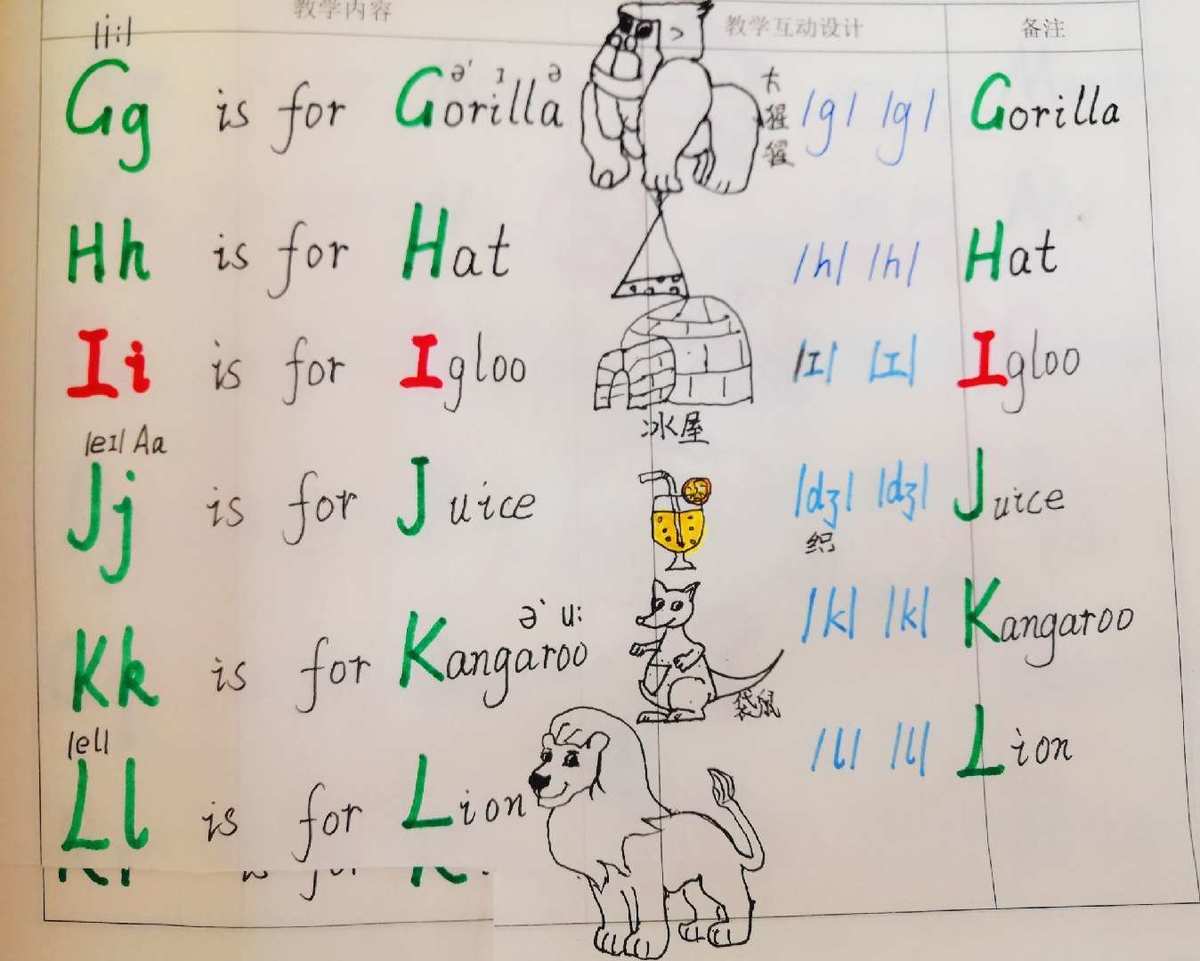 教学内容 教学互动设计 备注
/i:/
Gg is for Gorilla /g/ /g/ Gorilla
ə' ɪ ə
大猩猩
Hh is for Hat /h/ /h/ Hat
Ii is for Igloo /ɪ/ /ɪ/ Igloo
冰屋
/eɪ/ Aa
Jj is for Juice /dʒ/ /dʒ/ Juice
织
ə' u:
Kk is for Kangaroo /k/ /k/ Kangaroo
袋鼠
/el/
Ll is for Lion /l/ /l/ Lion